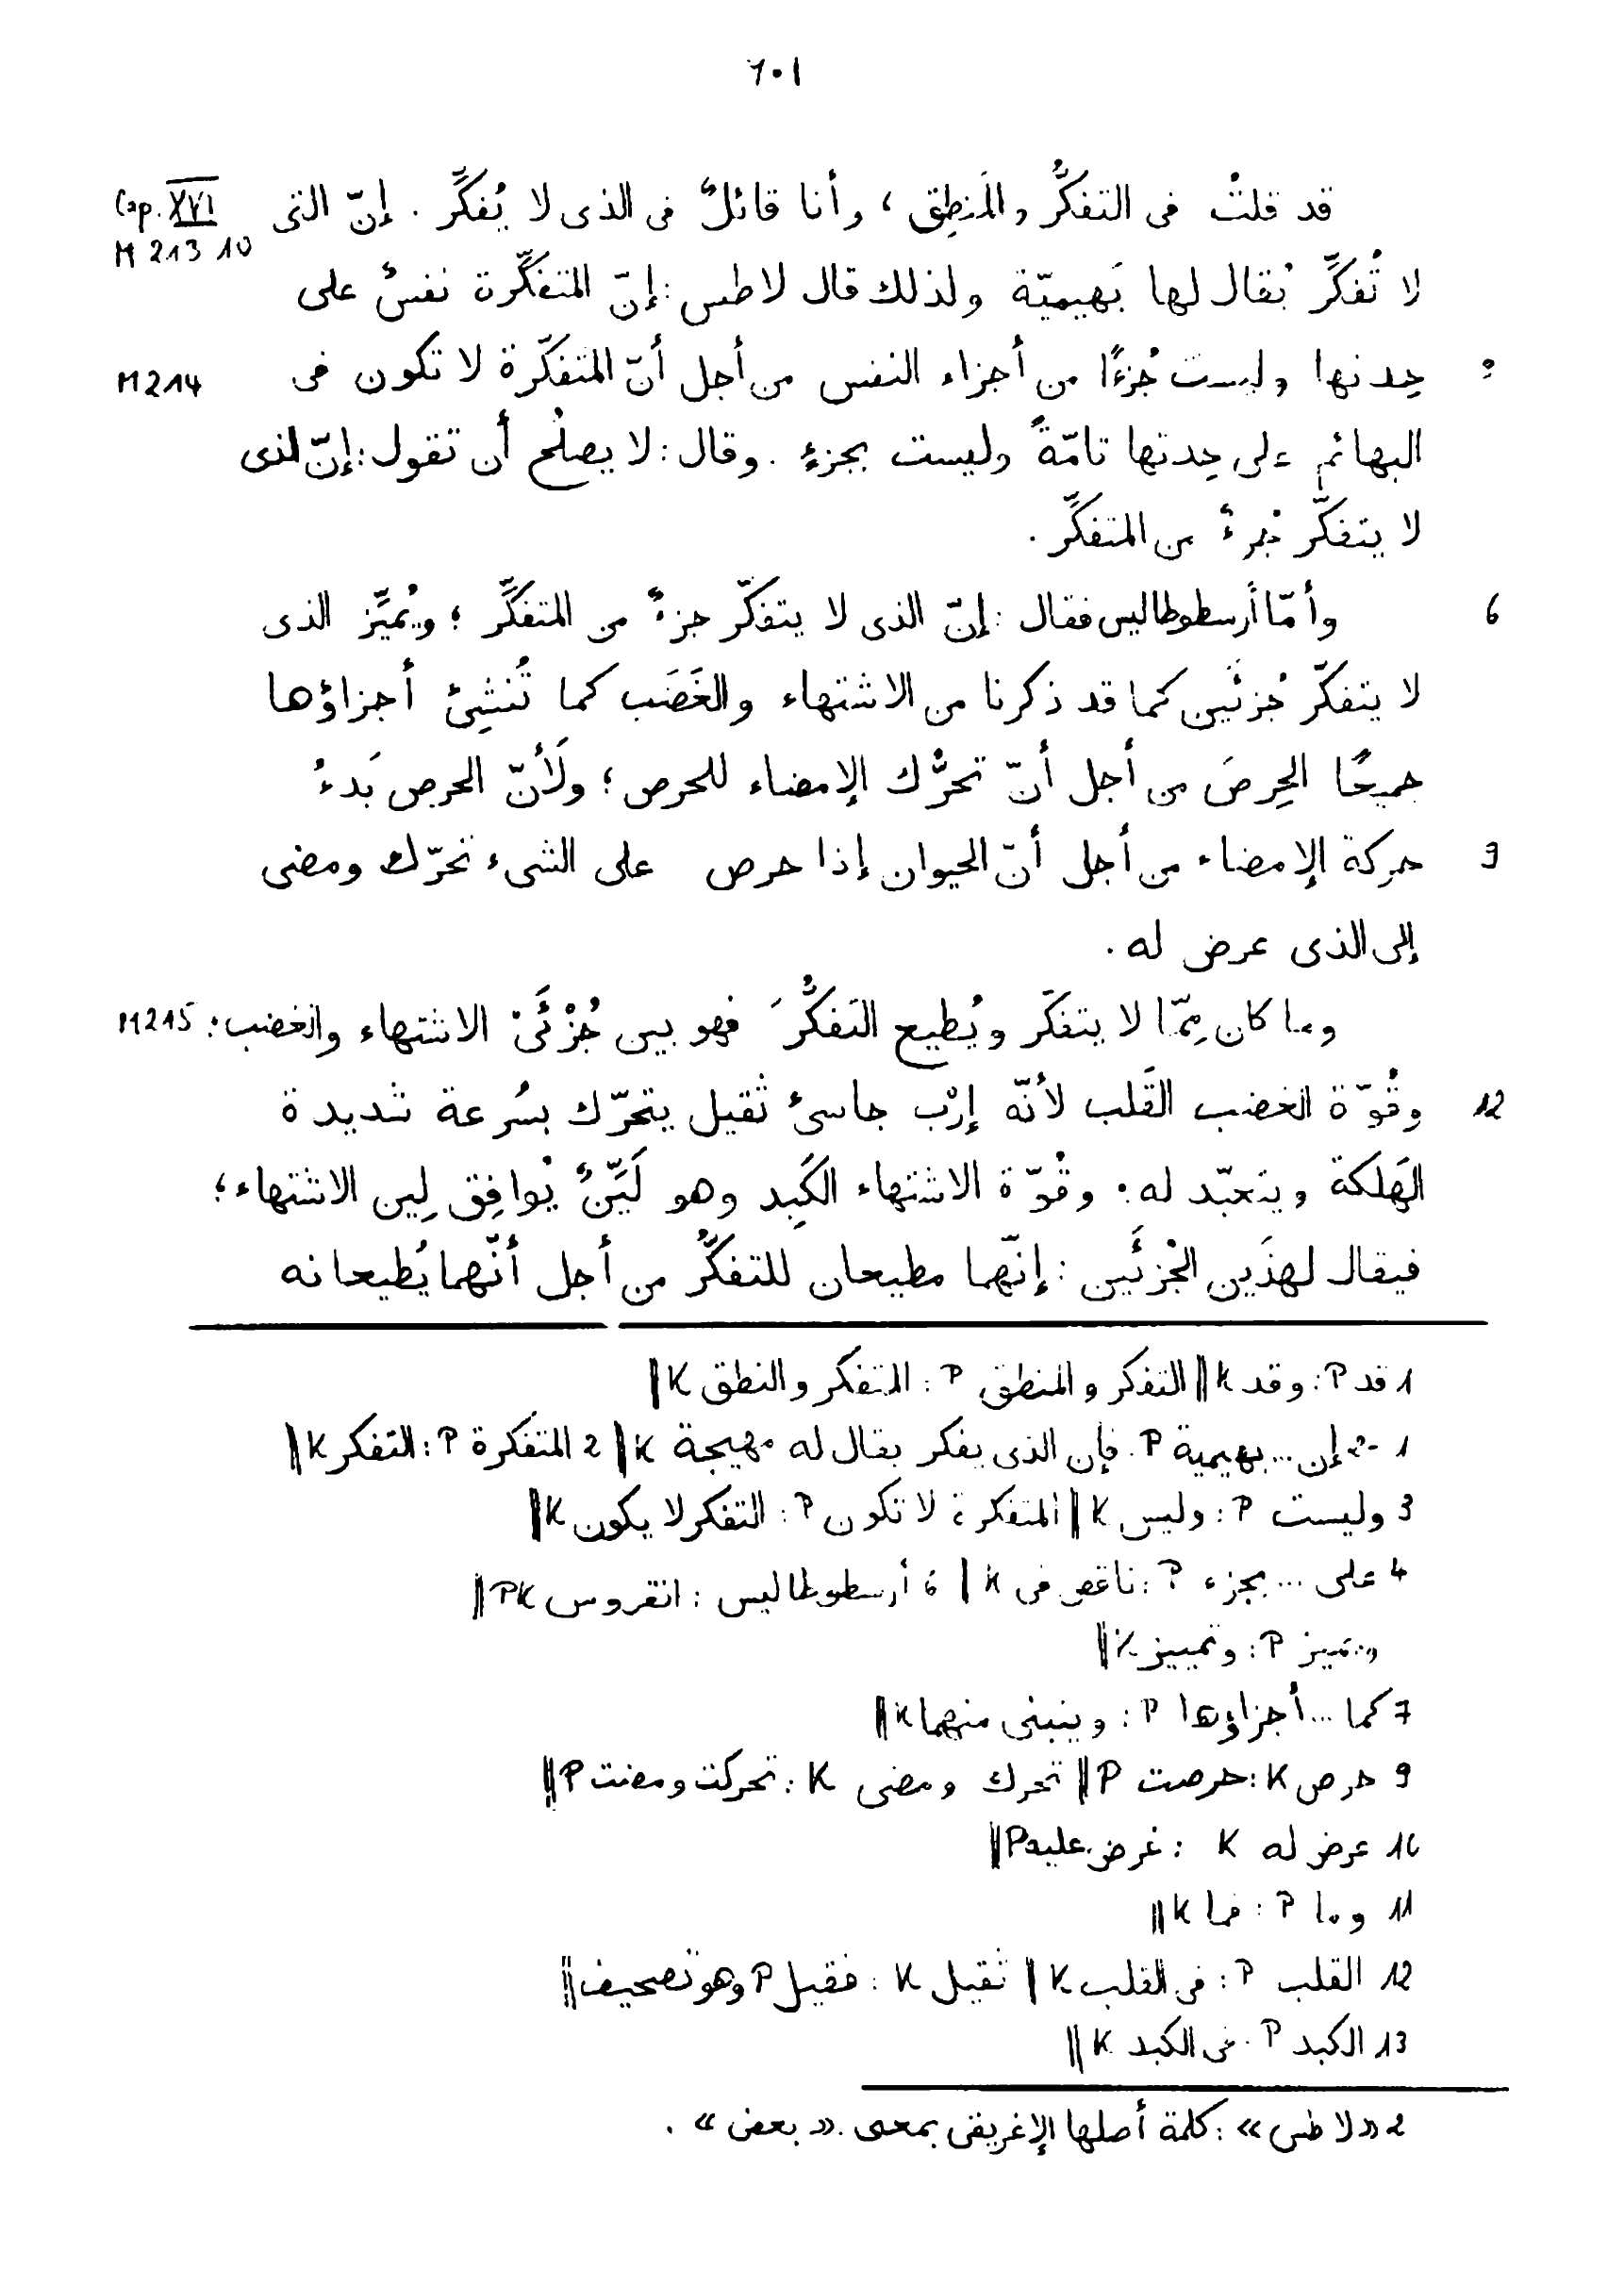 ١٠٦
Cap. XVI قد قلتُ فى التفكُّر والمَنطِق، وأنا قائلٌ فى الذى لا يُفكِّر. إنّ التى
M 213 10
لا تُفكِّر يُقال لها بَهيميّة ولذلك قال لاطس: إنّ المتفكِّرة نفسٌ على
M 214 حِدتها وليست جُزءًا من أجزاء النفس من أجل أنّ المتفكّرة لا تكون فى
البهائم على حِدتها تامّةً وليست بجزءٍ. وقال: لا يصلُح أن تقول: إنّ الذى
لا يتفكّر جُزءٌ من المتفكِّر.
6 وأمّا أرسطوطاليس فقال: إنّ الذى لا يتفكّر جزءٌ من المتفكِّر؛ ويُميِّز الذى
لا يتفكّر جُزئَين كما قد ذكرنا من الاشتهاء والغَضَب كما تُنشِئ أجزاؤها
جميعًا الحِرصَ من أجل أنّ تحرُّك الإمضاء للحرص؛ ولَأنّ الحرص بَدءُ
9 حركة الإمضاء من أجل أنّ الحيوان إذا حرص على الشىء تحرّك ومضى
إلى الذى عرض له.
M215 وما كان مِمّا لا يتفكّر ويُطيع التَفكُّرَ فهو بين جُزْئَىْ الاشتهاء والغضب؛
12 وقُوّة الغضب القَلب لأنّه إرْب جاسئ ثَقيل يتحرّك بسُرعة شديدة
الهَلكة ويتعبّد له؛ وقُوّة الاشتهاء الكَبِد وهو لَيِّنٌ يُوافِق لِين الاشتهاء؛
فيقال لهذَين الجُزئَين: إنّهما مطيعان للتفكُّر من أجل أنّهما يُطيعانه
1 قد P: وقد K || التفكر والمنطق P: المتفكر والنطق K ||
1-2 إن... بهيمية P: فإن الذى يفكر يقال له مهيجة K || 2 المتفكرة P: التفكر K ||
3 وليست P: وليس K || المتفكرة لا تكون P: التفكر لا يكون K ||
4 على... بجزء P: ناقص فى K || 6 أرسطوطاليس: انقروس PK ||
ويميز P: وتمييز K ||
7 كما... أجزاؤها P: وينبنى منهما K ||
9 حرص K: حرصت P || تحرك ومضى K: تحركت ومضت P ||
10 عرض له K: غرض عليه P ||
11 وما P: فما K ||
12 القلب P: فى القلب K || ثقيل K: فقيل P وهو تصحيف ||
13 الكبد P: فى الكبد K ||
2 «لاطس»: كلمة أصلها الإغريقى بمعنى «بعض».